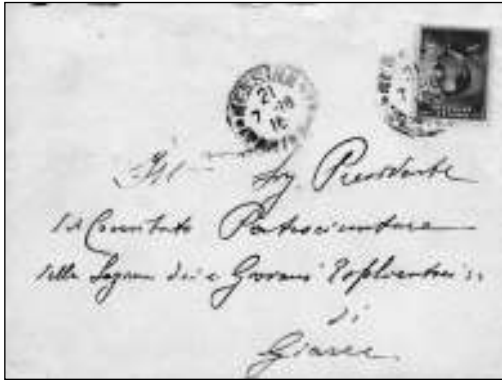 MESSINA
21
7 16
Sig. Presidente
del Comitato Patrocinatore
della Legione dei Giovani Esploratori
di
Giarre